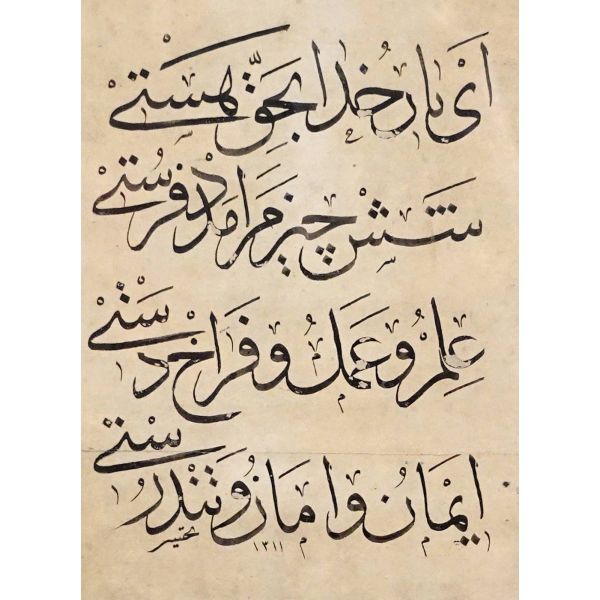 اَی بار خُدا بحقّ هَستی
شش چیز مَرا مدَدْ فرستی
عِلم و عَمَل و فَراخ دَستی
ایمان و امان و تندرستی
١٣١١